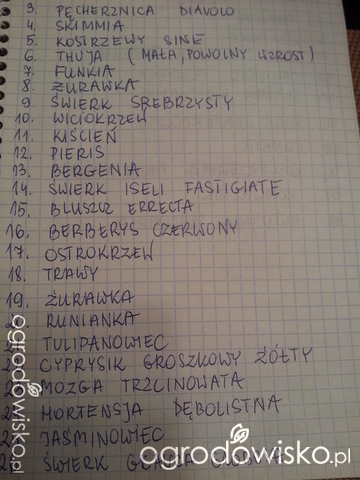 3. PĘCHERZNICA DIAVOLO
4. SKIMMIA
5. KOSTRZEWY SINE
6. THUJA (MAŁA, POWOLNY WZROST)
7. FUNKIA
8. ŻURAWKA
9 ŚWIERK SREBRZYSTY
10. WICIOKRZEW
11. KIŚCIEŃ
12. PIERIS
13. BERGENIA
14. ŚWIERK ISELI FASTIGIATE
15. BLUSZCZ ERRECTA
16. BERBERYS CZERWONY
17. OSTROKRZEW
18. TRAWY
19. ŻURAWKA
RUNIANKA
TULIPANOWIEC
CYPRYSIK GROSZKOWY ŻÓŁTY
MOZGA TRZCINOWATA
HORTENSJA DĘBOLISTNA
JAŚMINOWIEC
ŚWIERK
ogrodowisko.pl
ogrodowisko.pl